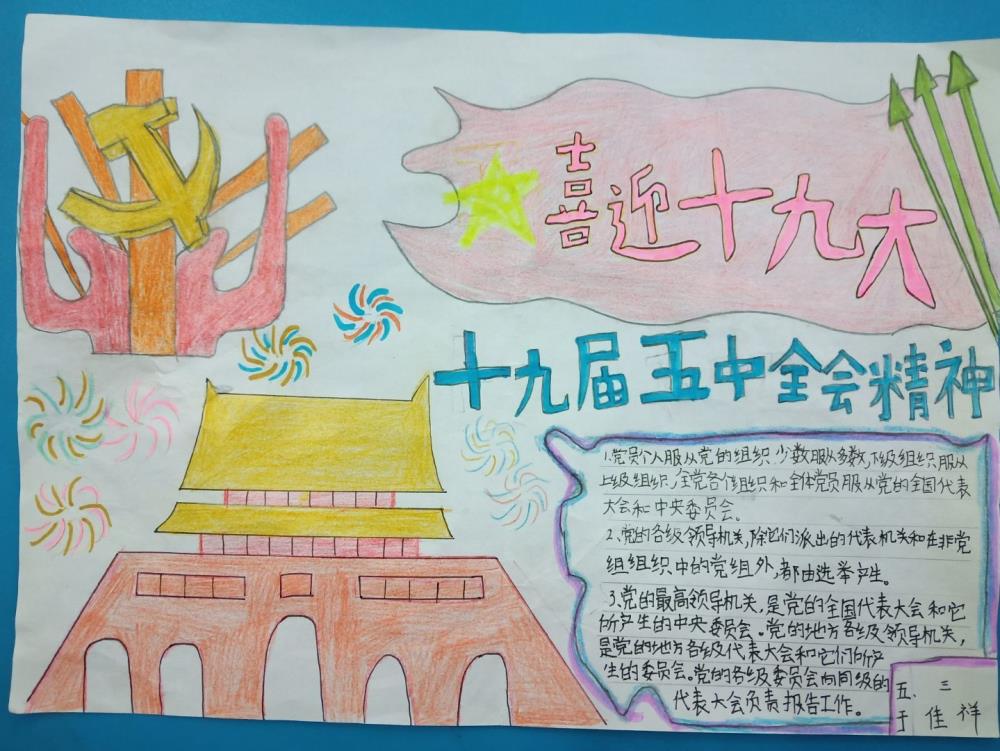 喜迎十九大
十九届五中全会精神
1.党员个人服从党的组织,少数服从多数,下级组织服从
上级组织,全党各个组织和全体党员服从党的全国代表
大会和中央委员会。
2.党的各级领导机关,除它们派出的代表机关和在非党
组组织中的党组外,都由选举产生。
3.党的最高领导机关,是党的全国代表大会和它
所产生的中央委员会。党的地方各级领导机关,
是党的地方各级代表大会和它们所产
生的委员会。党的各级委员会向同级的
代表大会负责报告工作。
五、三
于佳祥